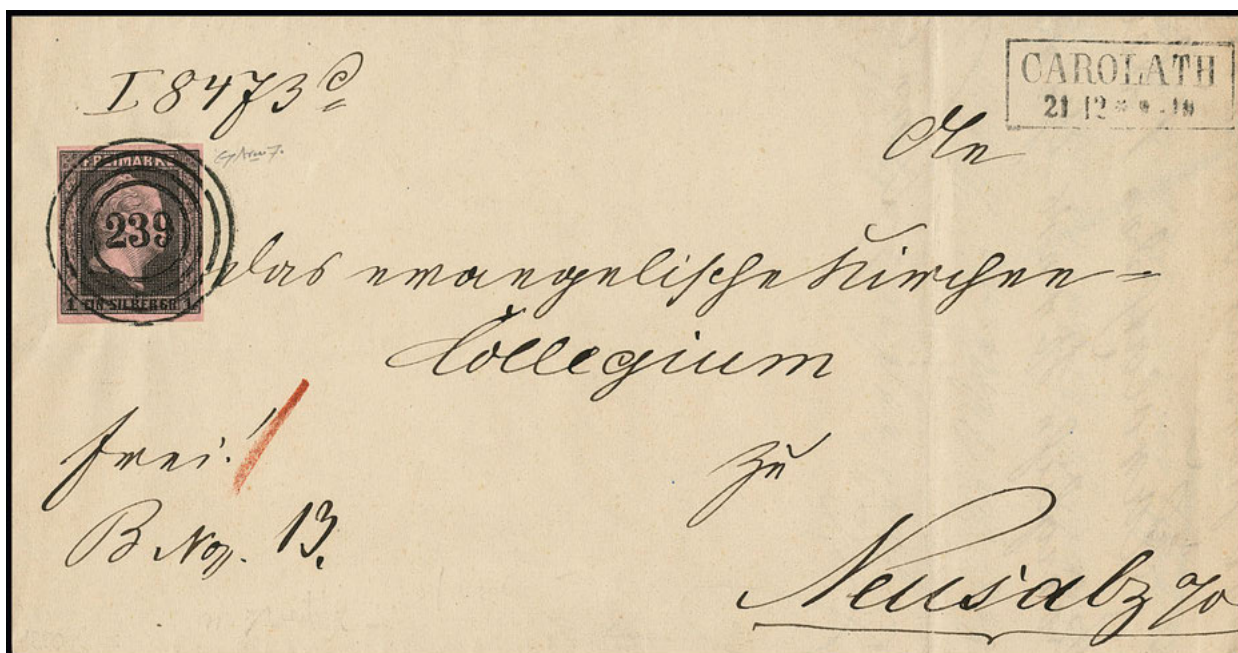 I 8473 c
CAROLATH
21 12 * 9-10
An
FREIMARKE
239
1 EIN SILBERGR. 1
das evangelische Kirchen=
Collegium
frei.
zu
B No. 13.
Neusalz a/O